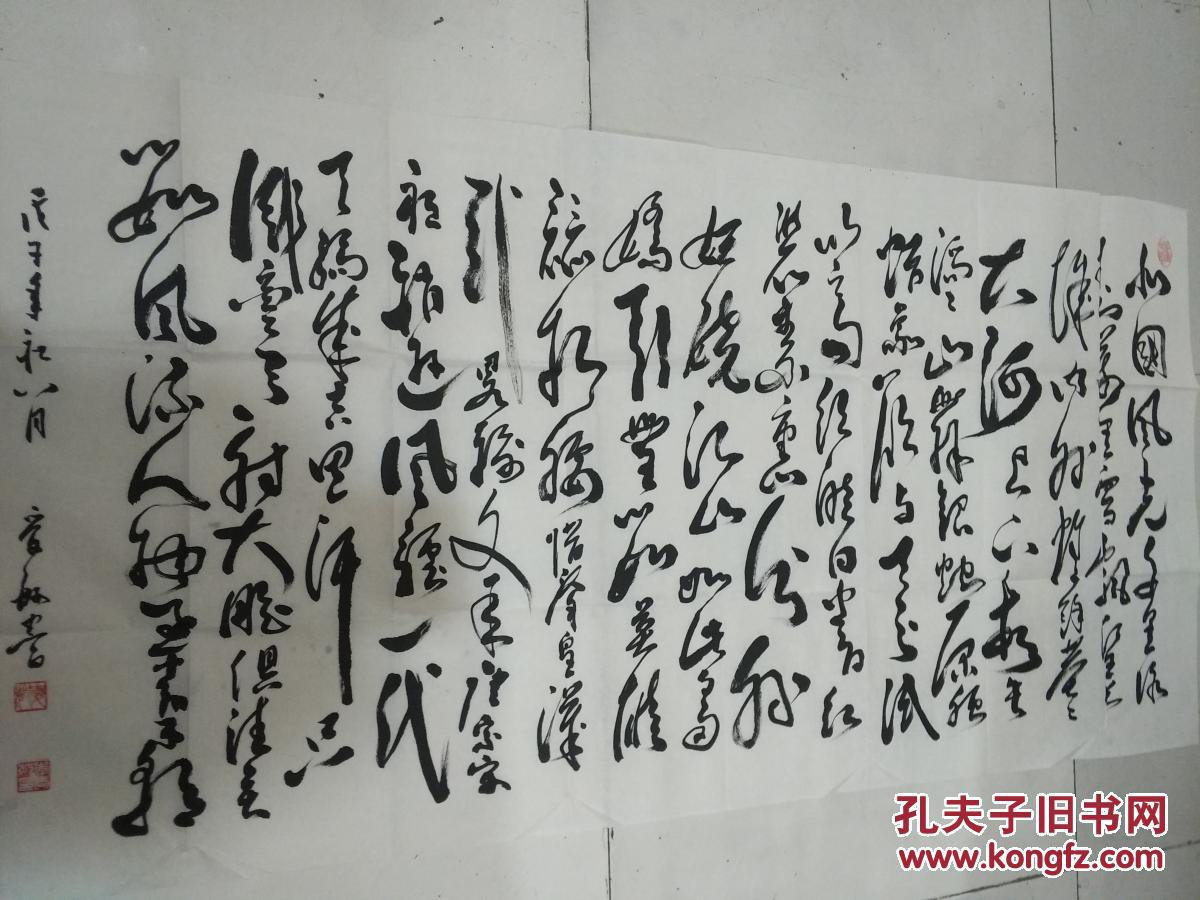 北國風光千里冰
封萬里雪飄望長
城内外惟餘莽莽
大河上下頓失
滔滔山舞銀蛇原馳
蜡象欲与天公试
比高须晴日看红
装素裹分外
妖娆江山如此多
嬌引無數英雄
競折腰惜秦皇漢
武略輸文采唐宗宋
祖稍逊風騷一代
天骄成吉思汗只
識彎弓射大雕俱往矣
數風流人物還看今朝
戊子年初八月 书
孔夫子旧书网
www.kongfz.com